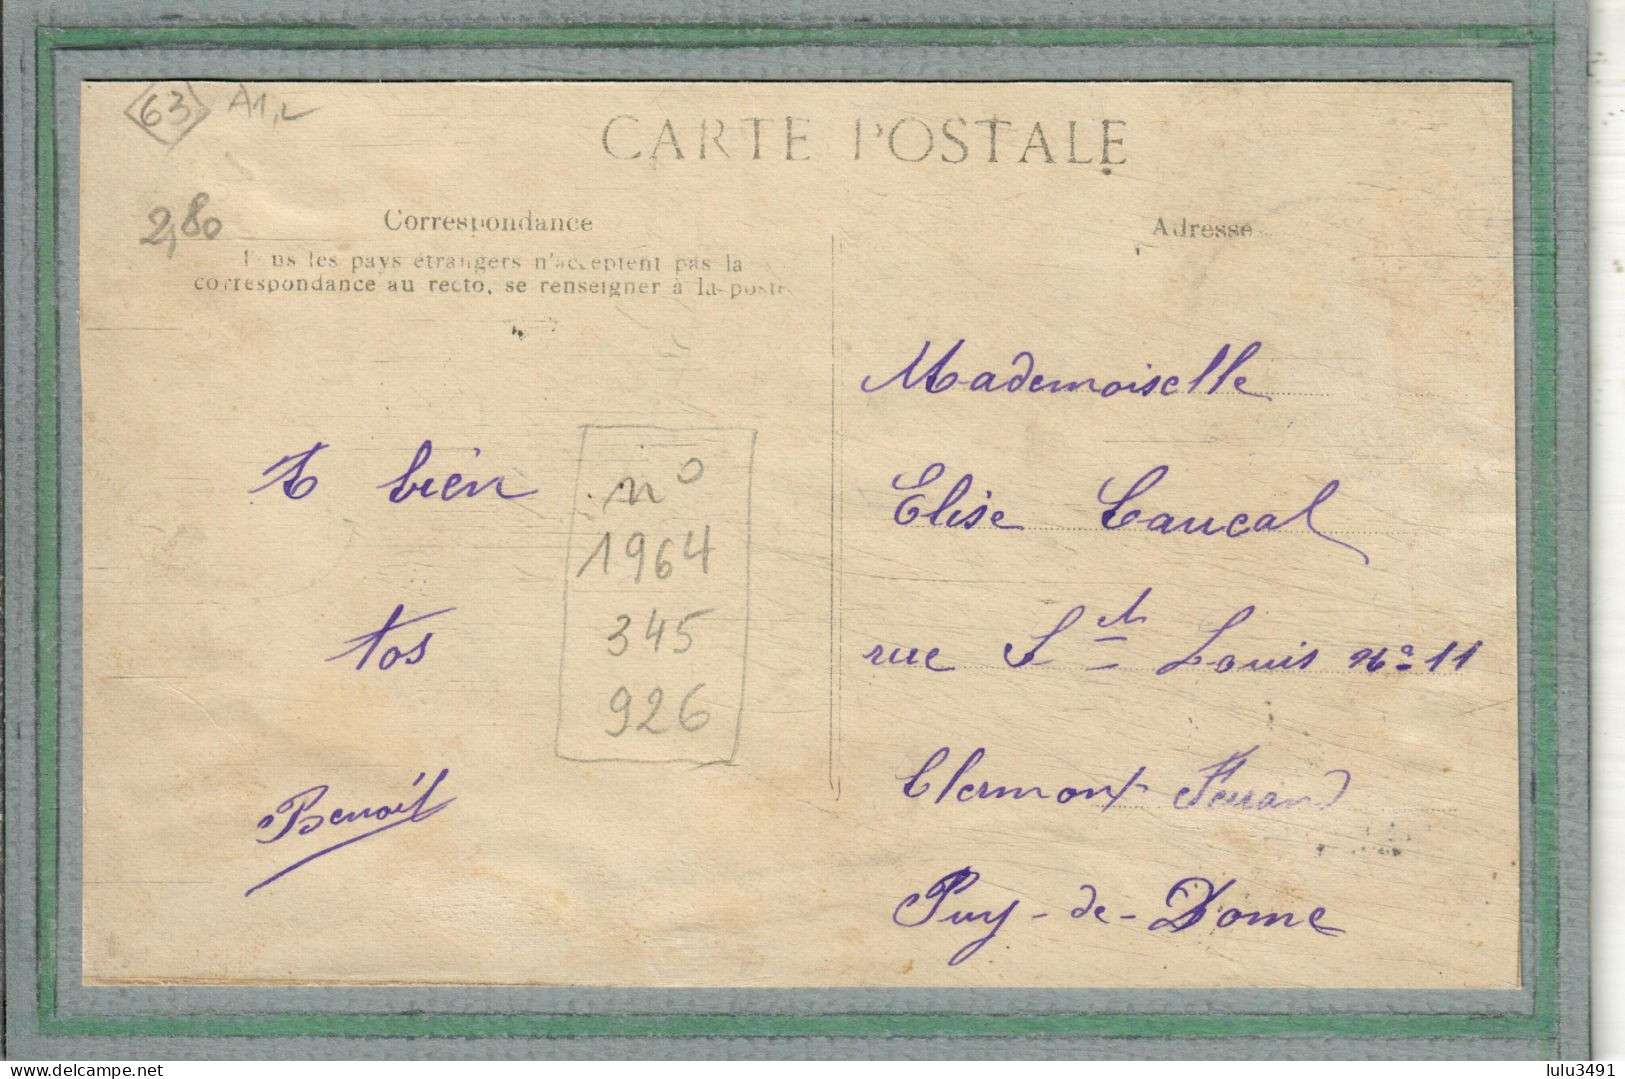 63 A1,
2,80
CARTE POSTALE
Correspondance
Tous les pays étrangers n'acceptent pas la
correspondance au recto, se renseigner à la poste
Adresse
A bien
tos
Benoit
n°
1964
345
926
Mademoiselle
Elise Caucal
rue St Louis n° 11
Clermont Ferrand
Puy-de-Dome
delcampe.net
lulu3491